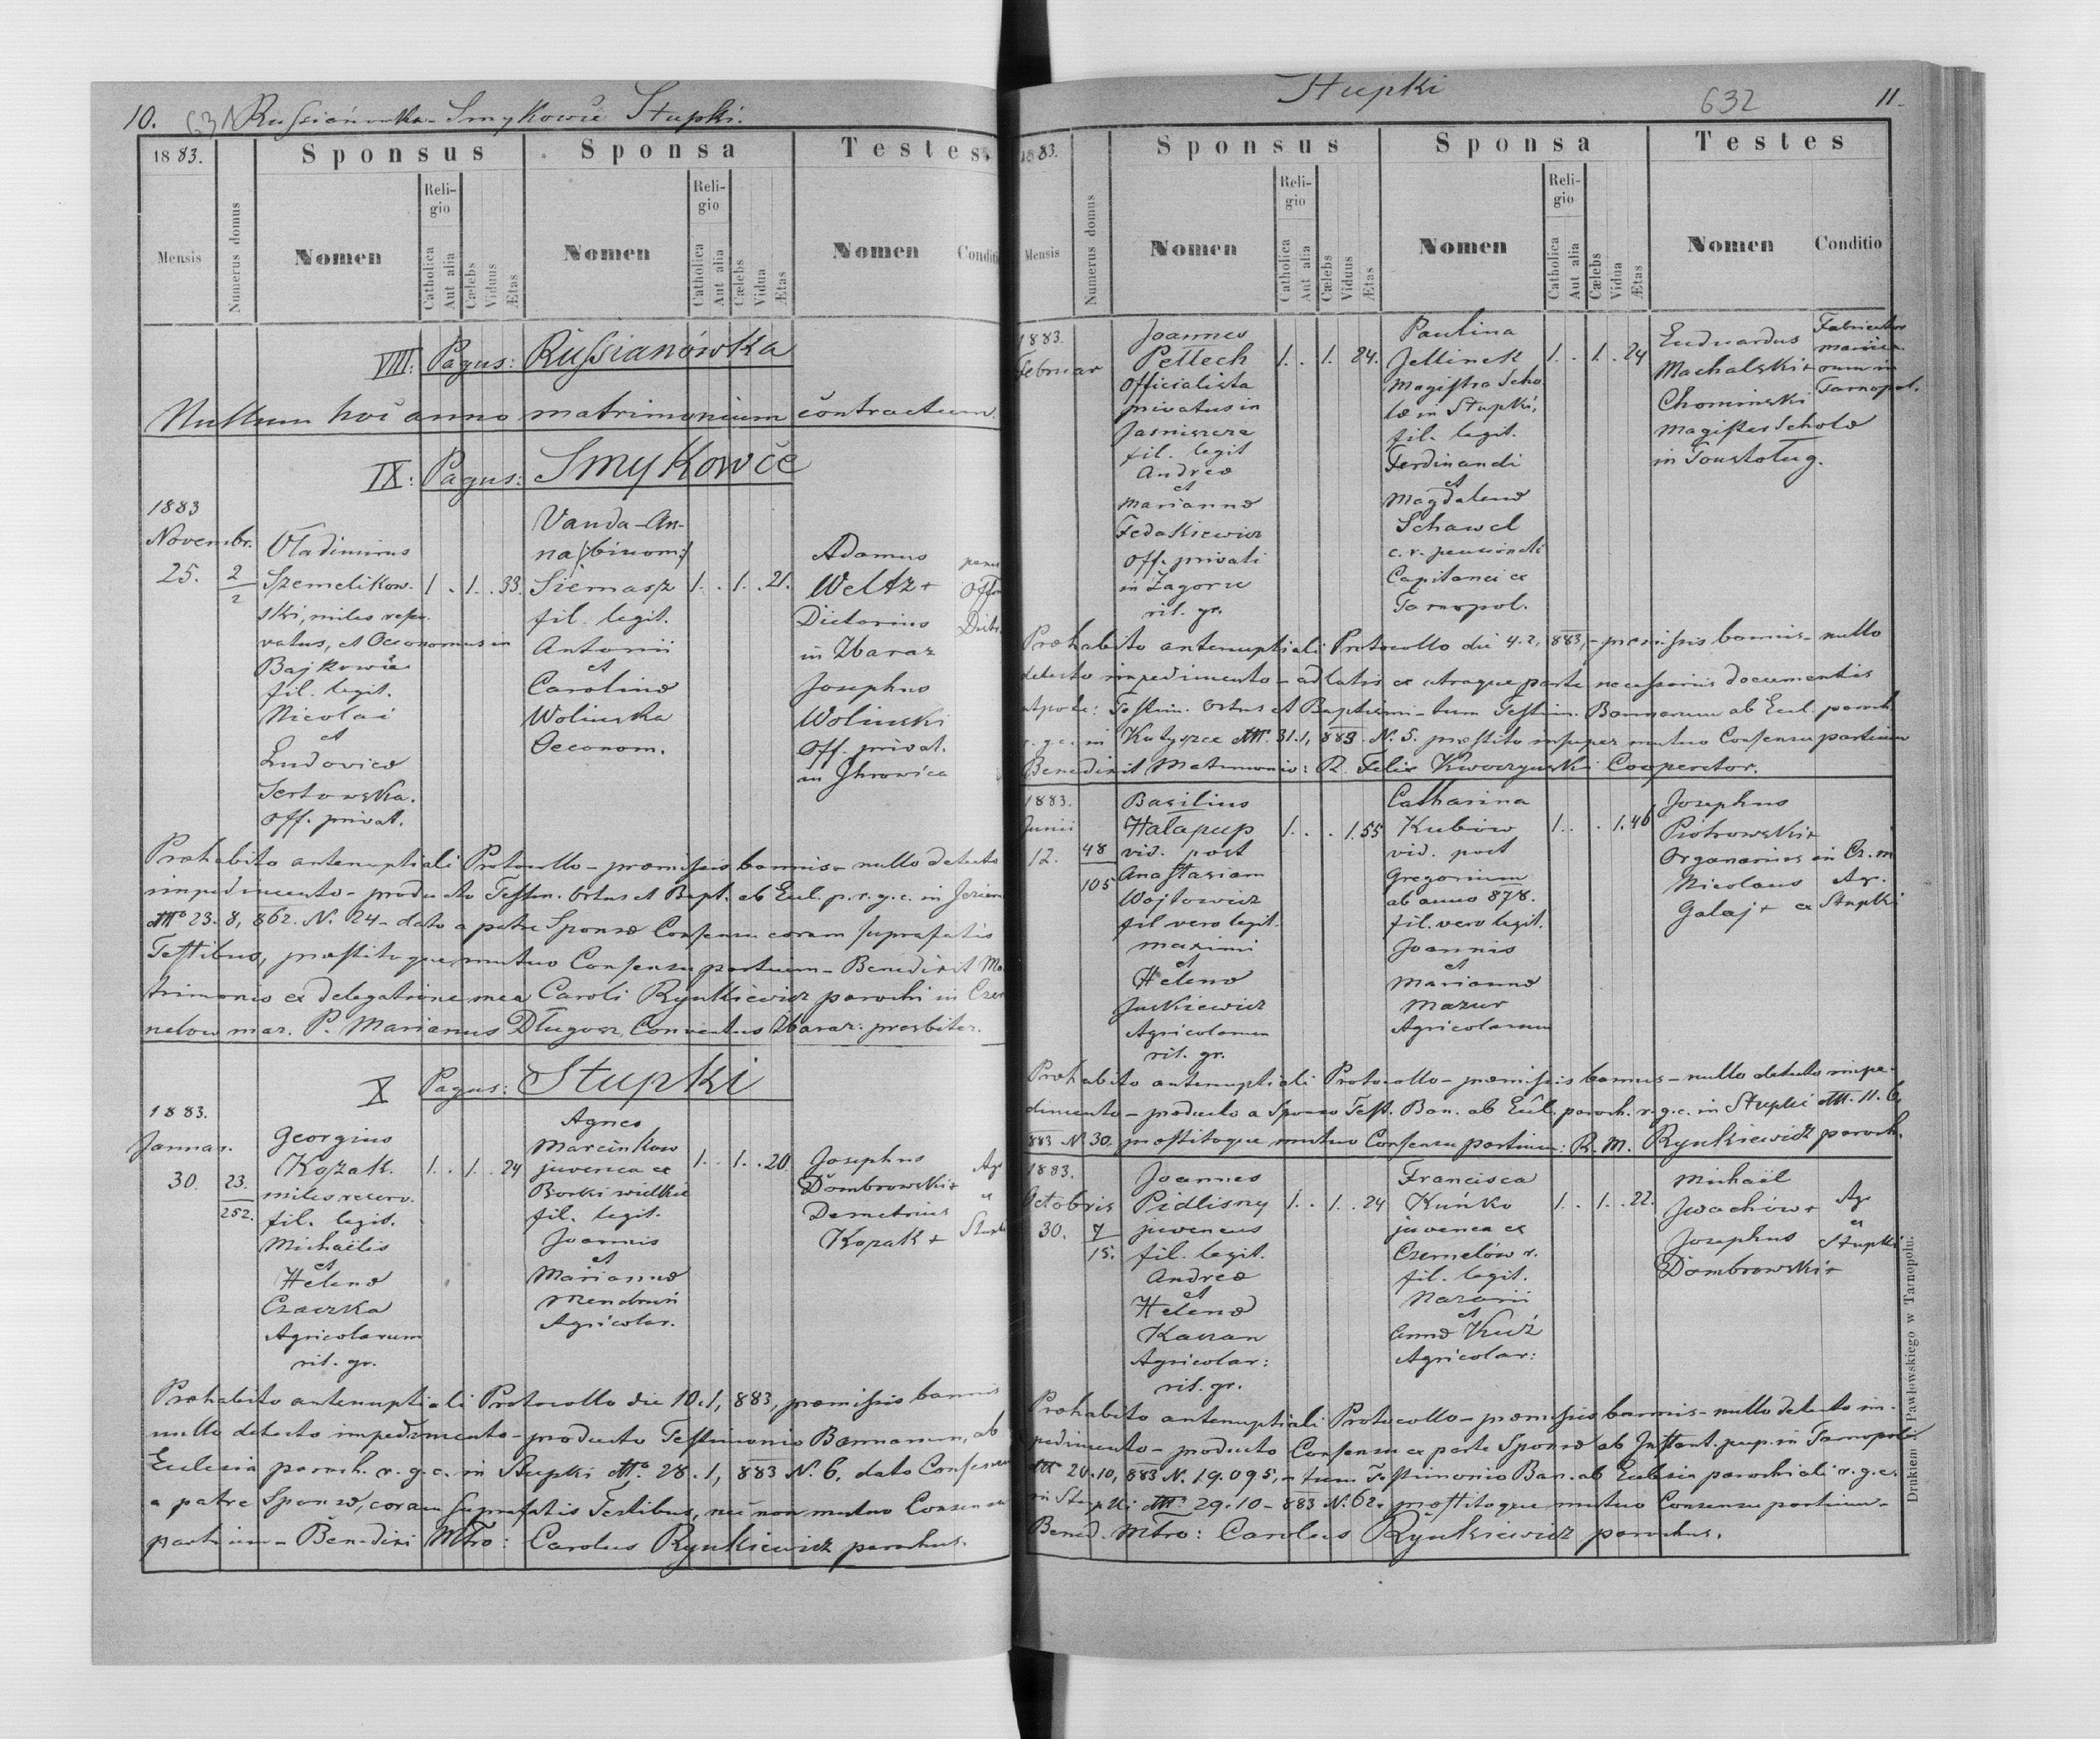 10. Russianówka - Smykowce Stupki.
1883.
Sponsus
Sponsa
Testes
Mensis
Numerus domus
Nomen
Religio
Catholica
Aut alia
Cælebs
Viduus
Ætas
Nomen
Religio
Catholica
Aut alia
Cælebs
Vidua
Ætas
Nomen
Conditio
VIII: Pagus: Russianówka
Nullum hoc anno matrimonium contractum.
IX: Pagus: Smykowce
1883
Novembr.
25.
2/2
Vladimirus
Szemelikow-
ski, miles reser-
vatus, et Oeconomus in
Bajkowce
fil. legit.
Nicolai
et
Ludovicæ
Sertowska.
Off. privat.
1. . 1. . 33.
Vanda-An-
na (binom:)
Siemasz
fil. legit.
Antonii
et
Carolinæ
Wolinska
Oeconom.
1. . 1. . 21.
Adamus
Weltz +
Dietarius
in Zbaraz
Josephus
Wolinski
Off. privat.
in Jhrowica
Præhabito antenuptiali Protocollo - præmissis bannis - nullo detecto
impedimento - producto Testim. Ortus et Bapt. ab Eccl. p. r. g. c. in
dtto 23. 8, 862. N. 24 - dato a patre Sponsæ Consensu coram suprafatis
Testibus, præstitoque mutuo Consensu partium - Benedixit Ma-
trimonio ex delegatione mea Caroli Rynkiewicz parochi in Czer
nelow maz. P. Marianus Długosz, Conventus Zbaraz: presbiter.
X Pagus: Stupki
1883.
Januar.
30.
23.
252.
Georgius
Kozak.
miles reserv.
fil. legit.
Michaëlis
et
Helenæ
Czaczka
Agricolarum
rit. gr.
1. . 1. . 24
Agnes
Marcinkow
juvenca ex
Borki wielkie
fil. legit.
Joannis
et
Mariannæ
Agricolar.
1. . 1. . 20.
Josephus
Dombrowski +
Demetrius
Kozak +
Præhabito antenuptiali Protocollo die 10. 1, 883, præmissis bannis
nullo detecto impedimento - producto Testimonio Bannorum, ab
Ecclesia paroch. r. g. c. in Stupki dtto 28. 1, 883 N. 6, dato Consensu
a patre Sponsæ, coram suprafatis Testibus, nec non mutuo Consensu
partium - Benedixi Mtro: Carolus Rynkiewicz parochus.
Stupki
632
11.
1883.
Sponsus
Sponsa
Testes
Mensis
Numerus domus
Nomen
Religio
Catholica
Aut alia
Cælebs
Viduus
Ætas
Nomen
Religio
Catholica
Aut alia
Cælebs
Vidua
Ætas
Nomen
Conditio
1883.
Februar
Joannes
Pellech
Officialista
privatus in
fil. legit
Andreæ
et
Mariannæ
Fedakiewicz
Off. privati
in Zagorze
rit. gr.
1. . 1. 24.
Paulina
Jellinek
Magistra Scho
læ in Stupki,
fil. legit.
Ferdinandi
et
Magdalenæ
Schawel
Capitanei ex
Tarnopol.
1. . 1. 24
Eduardus
Machalski +
Chominski
Magister Scholæ
in Toustoług.
Præhabito antenuptiali Protocollo die 4. 2, 883, - præmissis bannis - nullo
detecto impedimento - adlatis ex utraque parte necessariis documentis
utpote: Testim. Ortus et Baptismi - tum Testim. Bannorum ab Eccl. paroch.
r. g. c. in dtto 31. 1, 883. N. 5. præstito insuper mutuo Consensu partium
Benedixit Matrimonio: R. Felix Cooperator.
1883.
Junii
12.
48
105
Basilius
Hałapup
vid. post
Anastasiam
Wojtowicz
fil. vero legit.
Maximi
et
Helenæ
Juskiewicz
Agricolarum
rit. gr.
1. . . 1. 55
Catharina
Kubiow
vid. post
Gregorium
ab anno 878.
fil. vero legit.
Joannis
et
Mariannæ
Mazur
Agricolarum
1. . . 1. 46
Josephus
Piotrowski +
Organarius in Cz. m
Nicolaus Agr.
Galaj + ex Stupki
Præhabito antenuptiali Protocollo - præmissis bannis - nullo detecto impe-
dimento - producto a Sponso Test. Ban. ab Eccl. paroch. r. g. c. in Stupki dtto. 11. 6,
883 N. 30. præstitoque mutuo Consensu partium: R. M. Rynkiewicz paroch.
1883.
Octobris
30.
7
15.
Joannes
Pidlisny
juvencus
fil. legit.
Andreæ
et
Helenæ
Agricolar:
rit. gr.
1. . 1. . 24
Francisca
Kuńko
juvenca ex
Czernelów r.
fil. legit.
Nazarii
et
Annæ Kuź
Agricolar:
1. . 1. . 22.
Michaël
Jwachów +
Josephus
Dombrowski +
Agr
ex
Stupki
Præhabito antenuptiali Protocollo - præmissis bannis - nullo detecto im-
pedimento - producto Consensu ex parte Sponsæ ab Instant. pup. in Tarnopol
dtto 20. 10, 883 N. 19.095, - tum Testimonio Ban. ab Ecclesia parochiali r. g. c.
in Stupki dtto. 29. 10 - 883 N. 62. præstitoque mutuo Consensu partium -
Bened. Mtro: Carolus Rynkiewicz parochus.
Drukiem J. Pawłowskiego w Tarnopolu.